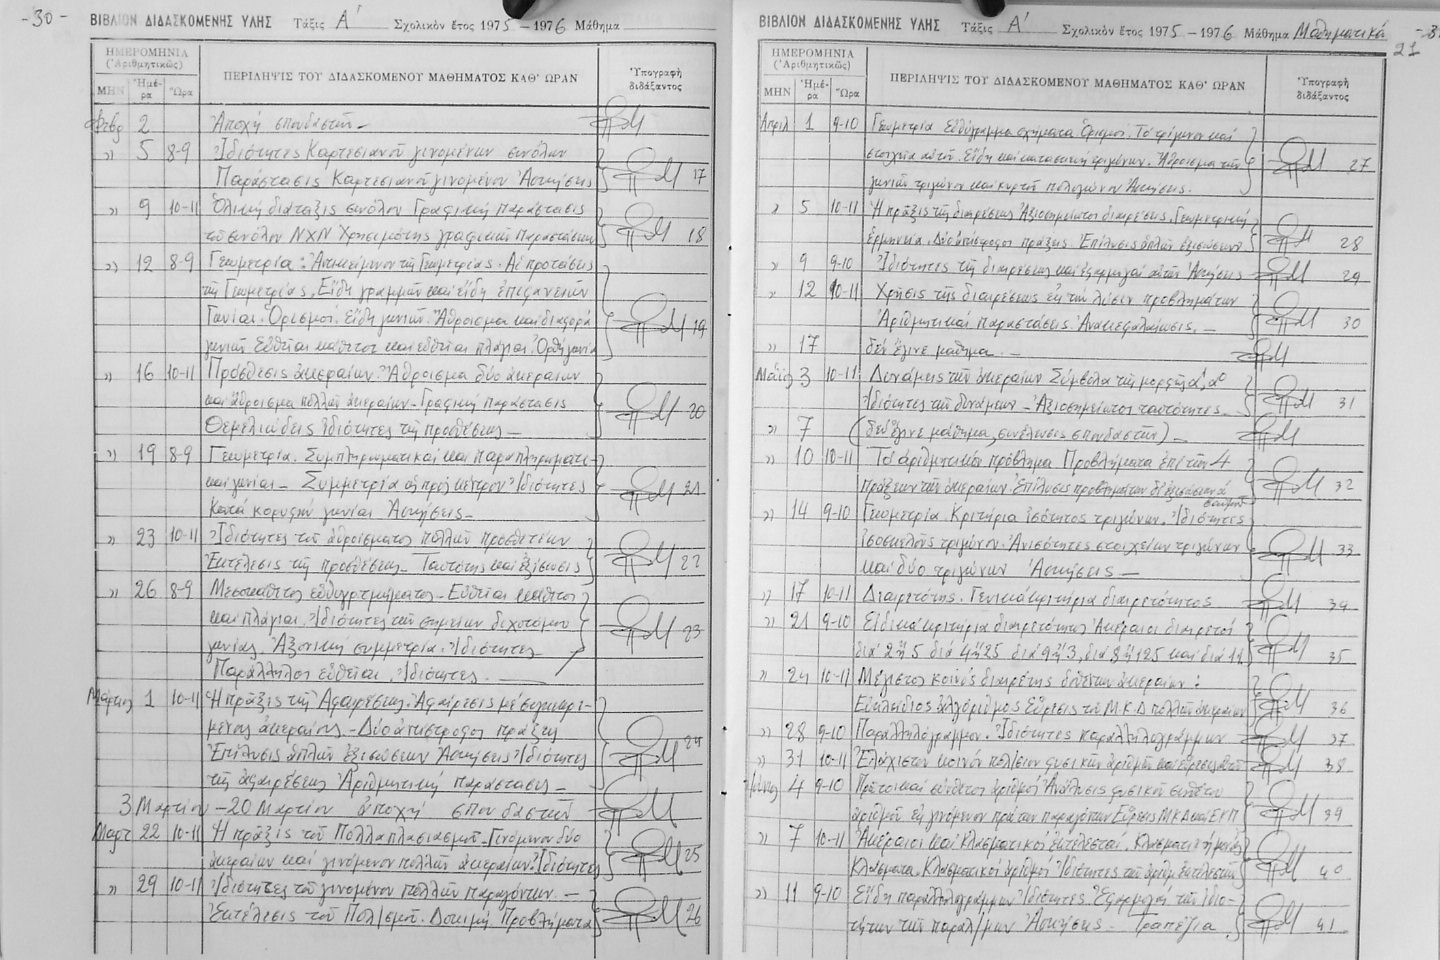 -30-
ΒΙΒΛΙΟΝ ΔΙΔΑΣΚΟΜΕΝΗΣ ΥΛΗΣ Τάξις Α' Σχολικὸν ἔτος 1975 - 1976 Μάθημα
ΗΜΕΡΟΜΗΝΙΑ
(Ἀριθμητικῶς)
ΜΗΝ Ἡμέρα Ὥρα
ΠΕΡΙΛΗΨΙΣ ΤΟΥ ΔΙΔΑΣΚΟΜΕΝΟΥ ΜΑΘΗΜΑΤΟΣ ΚΑΘ' ΩΡΑΝ
Ὑπογραφὴ διδάξαντος
Φεβρ 2 Ἀποχή σπουδαστῶν -
» 5 8-9 Ἰδιότητες Καρτεσιανοῦ γινομένου συνόλων
Παράστασις Καρτεσιανοῦ γινομένου Ἀσκήσεις 17
» 9 10-11 Ὁλική διάταξις συνόλου Γραφική παράστασις
τοῦ συνόλου ΝΧΝ Χρησιμότης γραφικῶν Παραστάσεων 18
» 12 8-9 Γεωμετρία: Ἀντικείμενον τῆς Γεωμετρίας. Αἱ προτάσεις
τῆς Γεωμετρίας, Εἴδη γραμμῶν καί εἴδη ἐπιφανειῶν
Γωνίαι. Ὁρισμοί. Εἴδη γωνιῶν. Ἄθροισμα καί διαφορά 19
γωνιῶν Εὐθεῖαι κάθετοι καί εὐθεῖαι πλάγιαι. Ὀρθή γωνία
» 16 10-11 Πρόσθεσις ἀκεραίων. Ἄθροισμα δύο ἀκεραίων
καί ἄθροισμα πολλῶν ἀκεραίων - Γραφική παράστασις 20
Θεμελιώδεις ἰδιότητες τῆς προσθέσεως -
» 19 8-9 Γεωμετρία. Συμπληρωματικαί καί παραπληρωματι-
καί γωνίαι - Συμμετρία ὡς πρός κέντρον Ἰδιότητες 21
Κατά κορυφήν γωνίαι Ἀσκήσεις -
» 23 10-11 Ἰδιότητες τοῦ ἀθροίσματος πολλῶν προσθετέων
Ἐκτέλεσις τῆς προσθέσεως - Ταυτότης καί ἐξίσωσις 22
» 26 8-9 Μεσοκάθετος εὐθυγρ. τμήματος - Εὐθεῖαι κάθετοι
καί πλάγιαι. Ἰδιότητες τῶν σημείων διχοτόμου 23
γωνίας. Ἀξονική συμμετρία. Ἰδιότητες
Παράλληλοι εὐθεῖαι, Ἰδιότητες. -
Μάρτιος 1 10-11 Ἡ πρᾶξις τῆς Ἀφαιρέσεως. Ἀφαίρεσις μέ συγκεκρι-
μένους ἀκεραίους. - Δύο ἀντίστροφοι πράξεις 24
Ἐπίλυσις ἁπλῶν ἐξισώσεων Ἀσκήσεις Ἰδιότητες
τῆς ἀφαιρέσεως Ἀριθμητική παράστασις -
3 Μαρτίου - 20 Μαρτίου ἀποχή σπουδαστῶν
Μαρτ. 22 10-11 Ἡ πρᾶξις τοῦ Πολλαπλασιασμοῦ - Γινόμενον δύο
ἀκεραίων καί γινόμενον πολλῶν ἀκεραίων. Ἰδιότητες 25
» 29 10-11 Ἰδιότητες τοῦ γινομένου πολλῶν παραγόντων. -
Ἐκτέλεσις τοῦ Πολ/σμοῦ. Δοκιμή. Προβλήματα 26
ΒΙΒΛΙΟΝ ΔΙΔΑΣΚΟΜΕΝΗΣ ΥΛΗΣ Τάξις Α' Σχολικὸν ἔτος 1975 - 1976 Μάθημα Μαθηματικά
21
ΗΜΕΡΟΜΗΝΙΑ
(Ἀριθμητικῶς)
ΜΗΝ Ἡμέρα Ὥρα
ΠΕΡΙΛΗΨΙΣ ΤΟΥ ΔΙΔΑΣΚΟΜΕΝΟΥ ΜΑΘΗΜΑΤΟΣ ΚΑΘ' ΩΡΑΝ
Ὑπογραφὴ διδάξαντος
Ἀπριλ 1 9-10 Γεωμετρία Εὐθύγραμμα σχήματα Ὁρισμοί. Τό τρίγωνον καί
στοιχεῖα αὐτοῦ. Εἴδη καί κατασκευή τριγώνων. Ἄθροισμα τῶν 27
γωνιῶν τριγώνου καί κυρτοῦ πολυγώνου Ἀσκήσεις.
» 5 10-11 Ἡ πρᾶξις τῆς διαιρέσεως Ἀξιοσημείωτοι διαιρέσεις, Γεωμετρική
ἑρμηνεία. Δύο ἀντίστροφοι πράξεις. Ἐπίλυσις ἁπλῶν ἐξισώσεων 28
» 9 9-10 Ἰδιότητες τῆς διαιρέσεως καί ἐφαρμογαί αὐτῶν Ἀσκήσεις 29
» 12 10-11 Χρῆσις τῆς διαιρέσεως εἰς τήν λύσιν προβλημάτων
Ἀριθμητικαί παραστάσεις. Ἀνακεφαλαίωσις. - 30
» 17 δέν ἔγινε μάθημα. -
Μάϊος 3 10-11 Δυνάμεις τῶν ἀκεραίων Σύμβολα τῆς μορφῆς α¹, α⁰
Ἰδιότητες τῶν δυνάμεων - Ἀξιοσημείωτοι ταυτότητες - 31
» 7 (δέν ἔγινε μάθημα, συνέλευσις σπουδαστῶν) -
» 10 10-11 Τό ἀριθμητικόν πρόβλημα Προβλήματα ἐπί τῶν 4
πράξεων τῶν ἀκεραίων Ἐπίλυσις προβλημάτων δι' ἐξισώσεων ἀ 32
» 14 9-10 Γεωμετρία Κριτήρια ἰσότητος τριγώνων. Ἰδιότητες
ἰσοσκελοῦς τριγώνου. Ἀνισότητες στοιχείων τριγώνων 33
καί δύο τριγώνων Ἀσκήσεις -
» 17 10-11 Διαιρετότης. Γενικά κριτήρια διαιρετότητος 34
» 21 9-10 Εἰδικά κριτήρια διαιρετότητος Ἀκέραιοι διαιρετοί
διά 2 ἤ 5 διά 4 ἤ 25 διά 9 ἤ 3, διά 8 ἤ 125 καί διά 11 35
» 24 10-11 Μέγιστος κοινός διαιρέτης δοθέντων ἀκεραίων:
Εὐκλείδειος ἀλγόριθμος Εὕρεσις τοῦ ΜΚΔ πολλῶν ἀκεραίων 36
» 28 9-10 Παραλληλόγραμμον. Ἰδιότητες παραλληλογράμμων 37
» 31 10-11 Ἐλάχιστον κοινόν πολ/σιον φυσικῶν ἀριθμῶν καί εὕρεσις αὐτοῦ 38
Ἰούνιος 4 9-10 Πρῶτοι καί σύνθετοι ἀριθμοί Ἀνάλυσις φυσικοῦ συνθέτου
ἀριθμοῦ εἰς γινόμενον πρώτων παραγόντων Εὕρεσις ΜΚΔ καί ΕΚΠ 39
» 7 10-11 Ἀκέραιοι καί Κλασματικοί ἐκτελεσταί. Κλασματική μονάς
Κλάσματα. Κλασματικοί ἀριθμοί Ἰδιότητες τῶν ἀριθμ. ἐκτελεστῶν 40
» 11 9-10 Εἴδη παραλληλογράμμων Ἰδιότητες. Ἐφαρμογαί τῶν ἰδιο-
τήτων τῶν παραλ/μων Ἀσκήσεις - Τραπέζια. 41